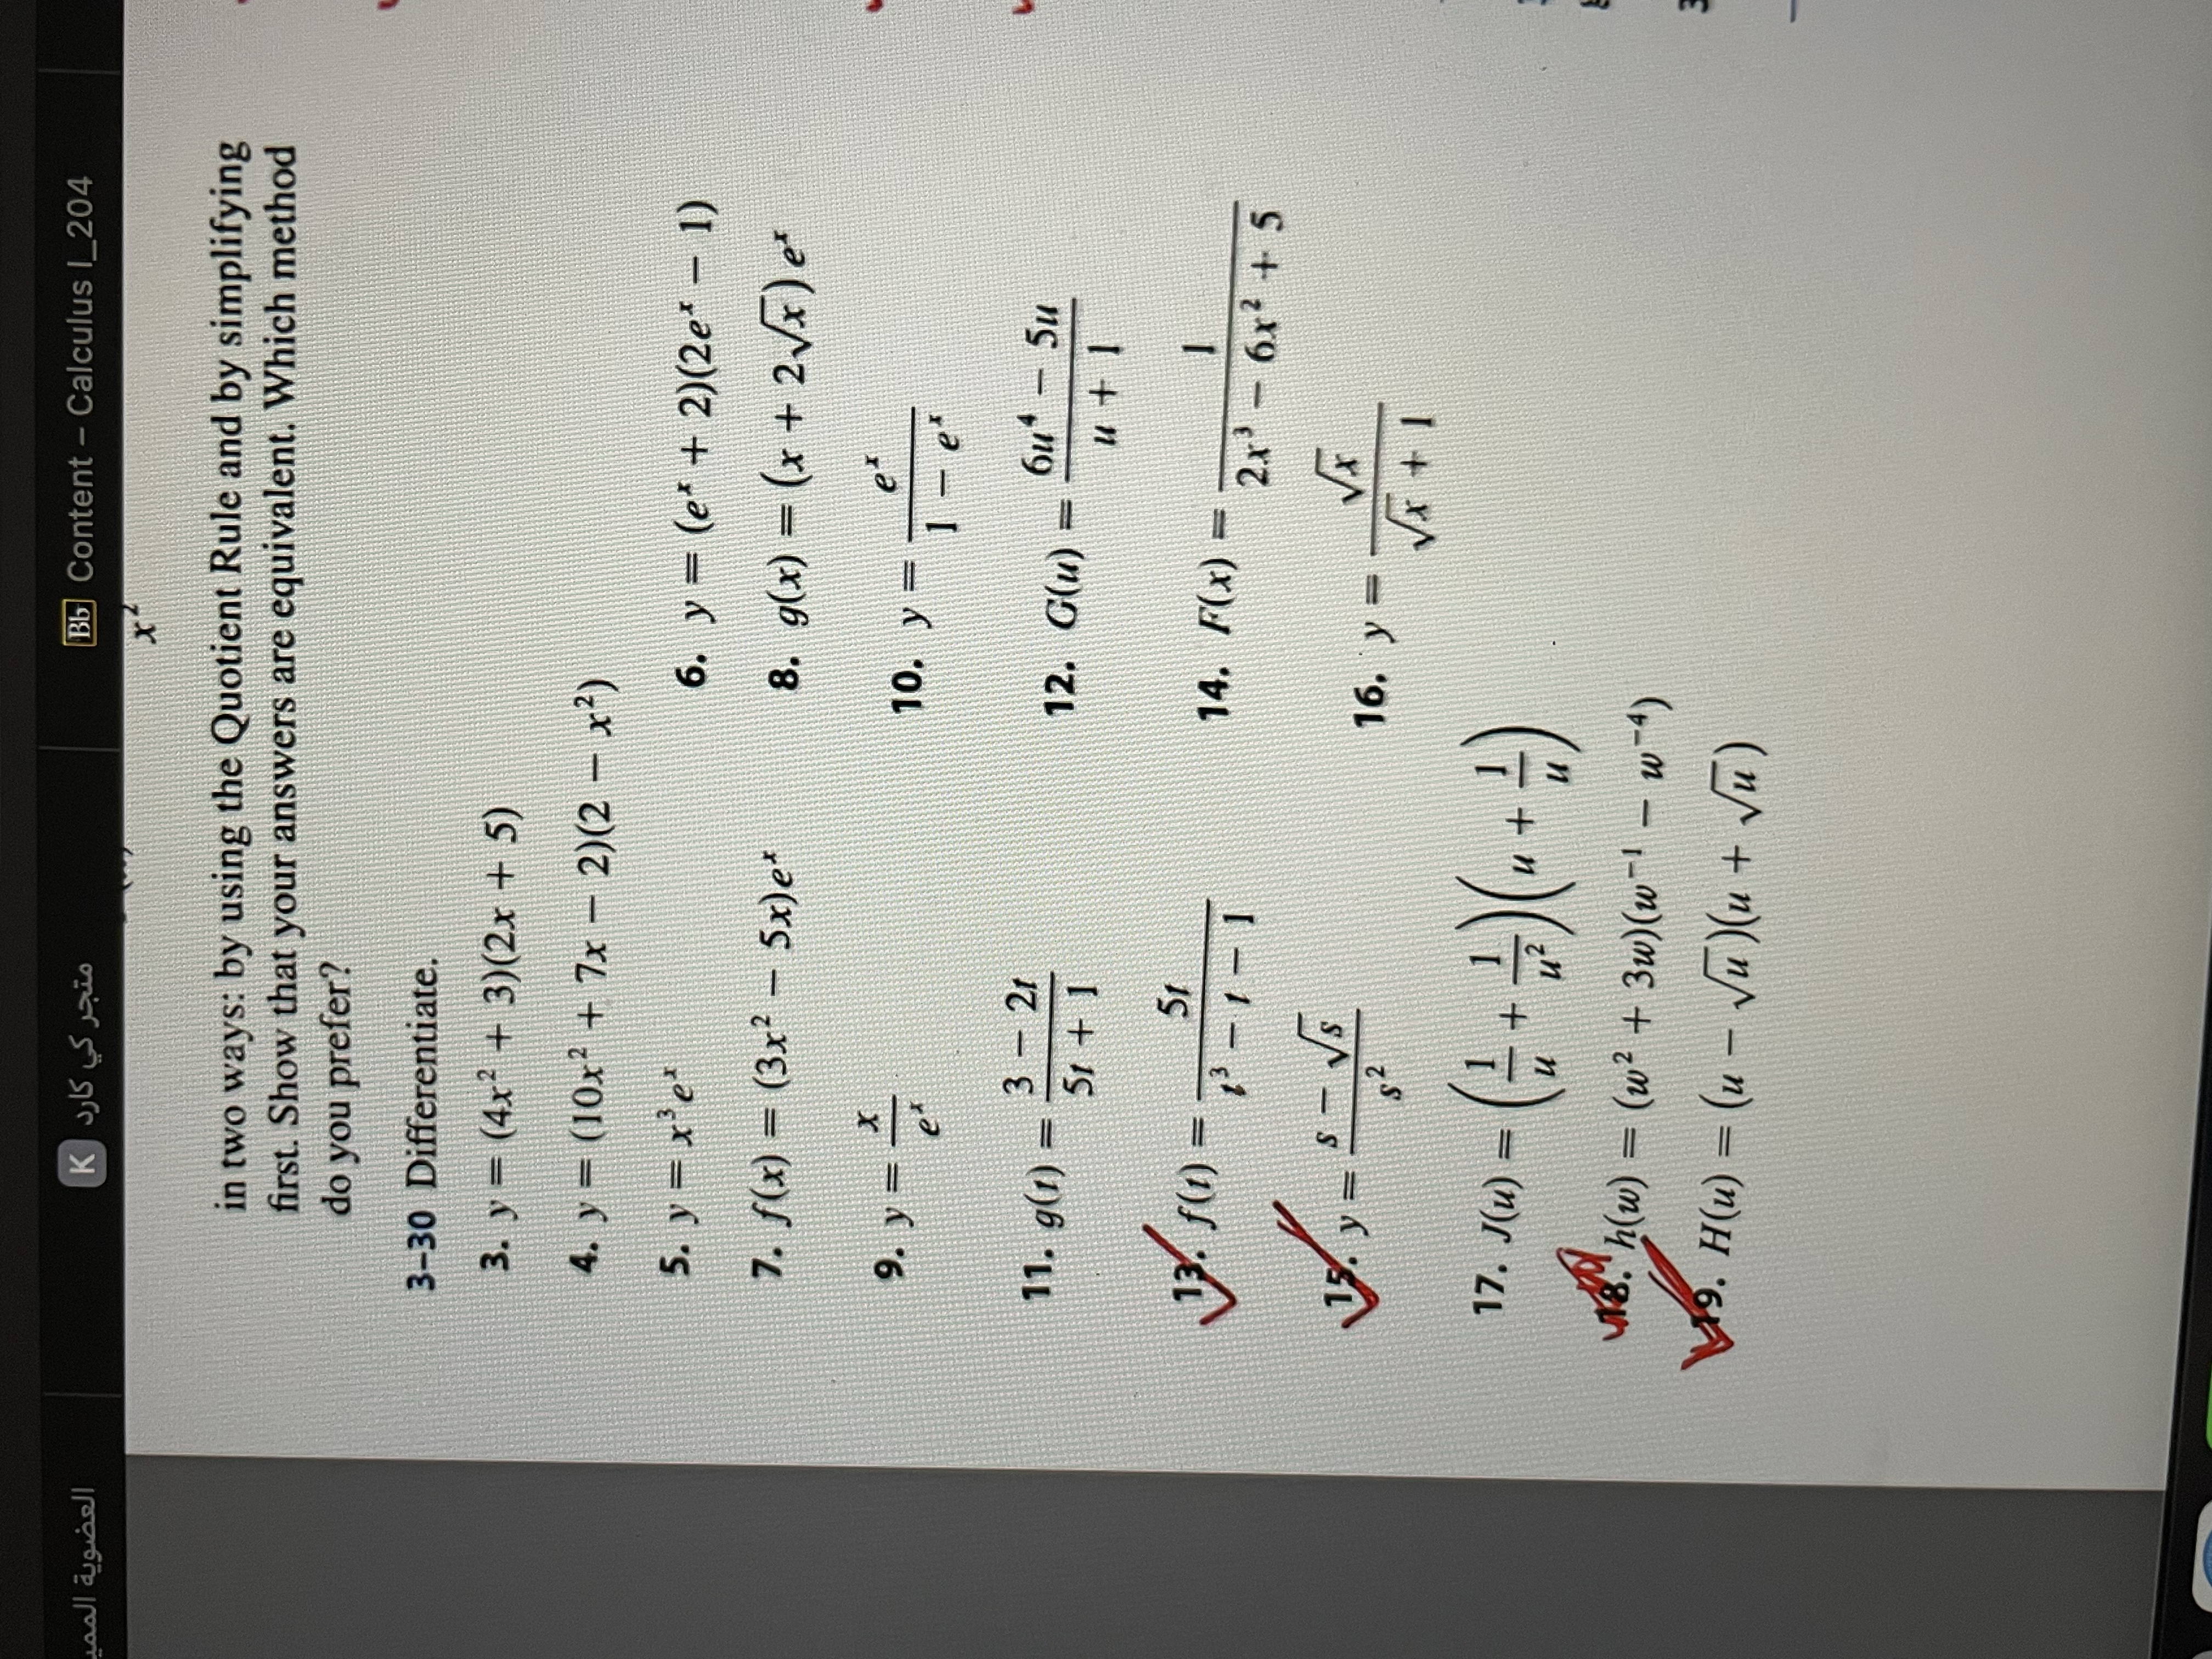 العضوية المميز
K متجر كي كارد
Bb Content – Calculus I_204
x²
in two ways: by using the Quotient Rule and by simplifying
first. Show that your answers are equivalent. Which method
do you prefer?
3–30 Differentiate.
3. y = (4x² + 3)(2x + 5)
4. y = (10x² + 7x − 2)(2 − x²)
5. y = x³eˣ
6. y = (eˣ + 2)(2eˣ − 1)
7. f(x) = (3x² − 5x)eˣ
8. g(x) = (x + 2√x)eˣ
9. y = x/eˣ
10. y = eˣ/(1 − eˣ)
11. g(t) = (3 − 2t)/(5t + 1)
12. G(u) = (6u⁴ − 5u)/(u + 1)
13. f(t) = 5t/(t³ − t − 1)
14. F(x) = 1/(2x³ − 6x² + 5)
15. y = (s − √s)/s²
16. y = √x/(√x + 1)
17. J(u) = (1/u + 1/u²)(u + 1/u)
18. h(w) = (w² + 3w)(w⁻¹ − w⁻⁴)
19. H(u) = (u − √u)(u + √u)